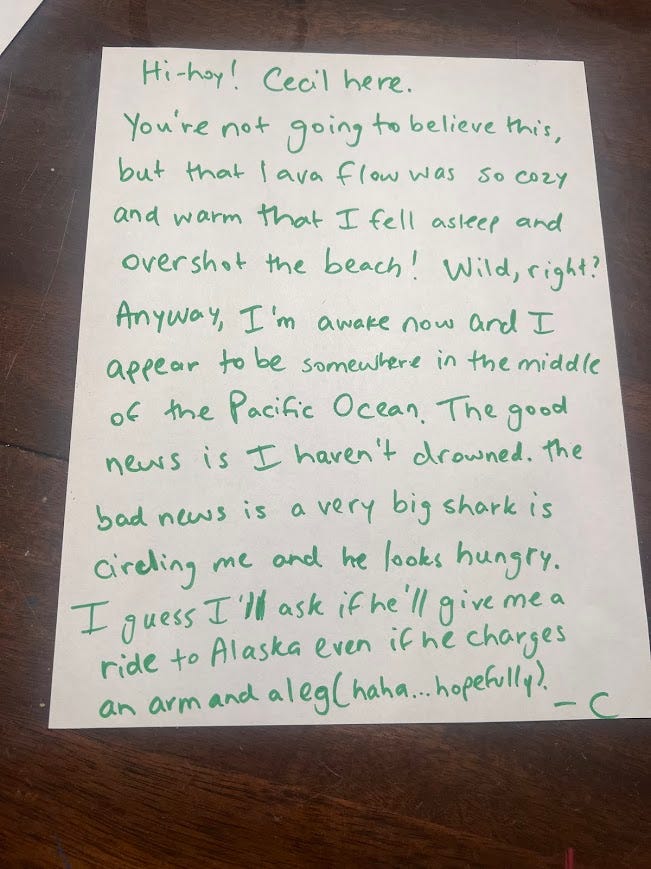 Hi-hoy! Cecil here.
You're not going to believe this,
but that lava flow was so cozy
and warm that I fell asleep and
overshot the beach! Wild, right?
Anyway, I'm awake now and I
appear to be somewhere in the middle
of the Pacific Ocean. The good
news is I haven't drowned. The
bad news is a very big shark is
circling me and he looks hungry.
I guess I'll ask if he'll give me a
ride to Alaska even if he charges
an arm and a leg (haha...hopefully).
- C